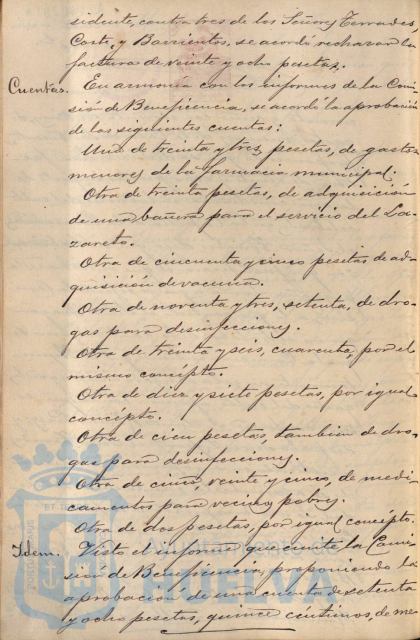 sidente, contra tres de los Señores Terrades,
Corte, y Barrientos, se acordó rechazar la
factura de veinte y ocho pesetas.
Cuentas. En armonía con los informes de la Comi
sión de Beneficencia, se acordó la aprobación
de las siguientes cuentas:
Una de treinta y tres, pesetas, de gastos
menores de la farmacia municipal.
Otra de treinta pesetas, de adquisición
de una bañera para el servicio del La-
zareto.
Otra de cincuenta y cinco pesetas de ad-
quisición de vacuna.
Otra de noventa y tres, setenta, de dro-
gas para desinfecciones.
Otra de treinta y seis, cuarenta, por el
mismo concépto.
Otra de diez y siete pesetas, por igual
concépto.
Otra de cien pesetas, tambien de dro-
gas para desinfecciones.
Otra de cinco, veinte y cinco, de medi-
camentos para vecinos pobres.
Otra de dos pesetas, por igual concépto.
Idem. Visto el informe que emite la Comi-
sión de Beneficencia, proponiendo la
aprobación de una cuenta de setenta
y ocho pesetas, quince céntimos, de me